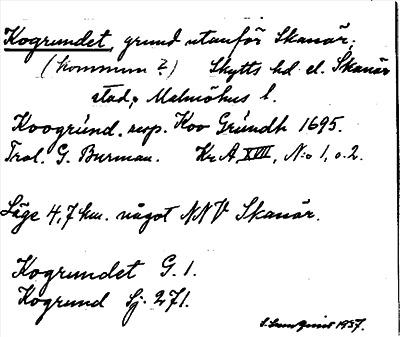 Kogrundet, grund utanför Skanör,
(kommun?) Skytts hd el. Skanör
stad, Malmöhus l.
Koogründ, resp. Koo Gründh 1695.
Trol. G. Burman. Kr A XVIII, N:o 1, o. 2.
Läge 4,7 km. något NNV Skanör.
Kogrundet G. 1.
Kogrund Sj. 271.
S. Lundquist 1937.